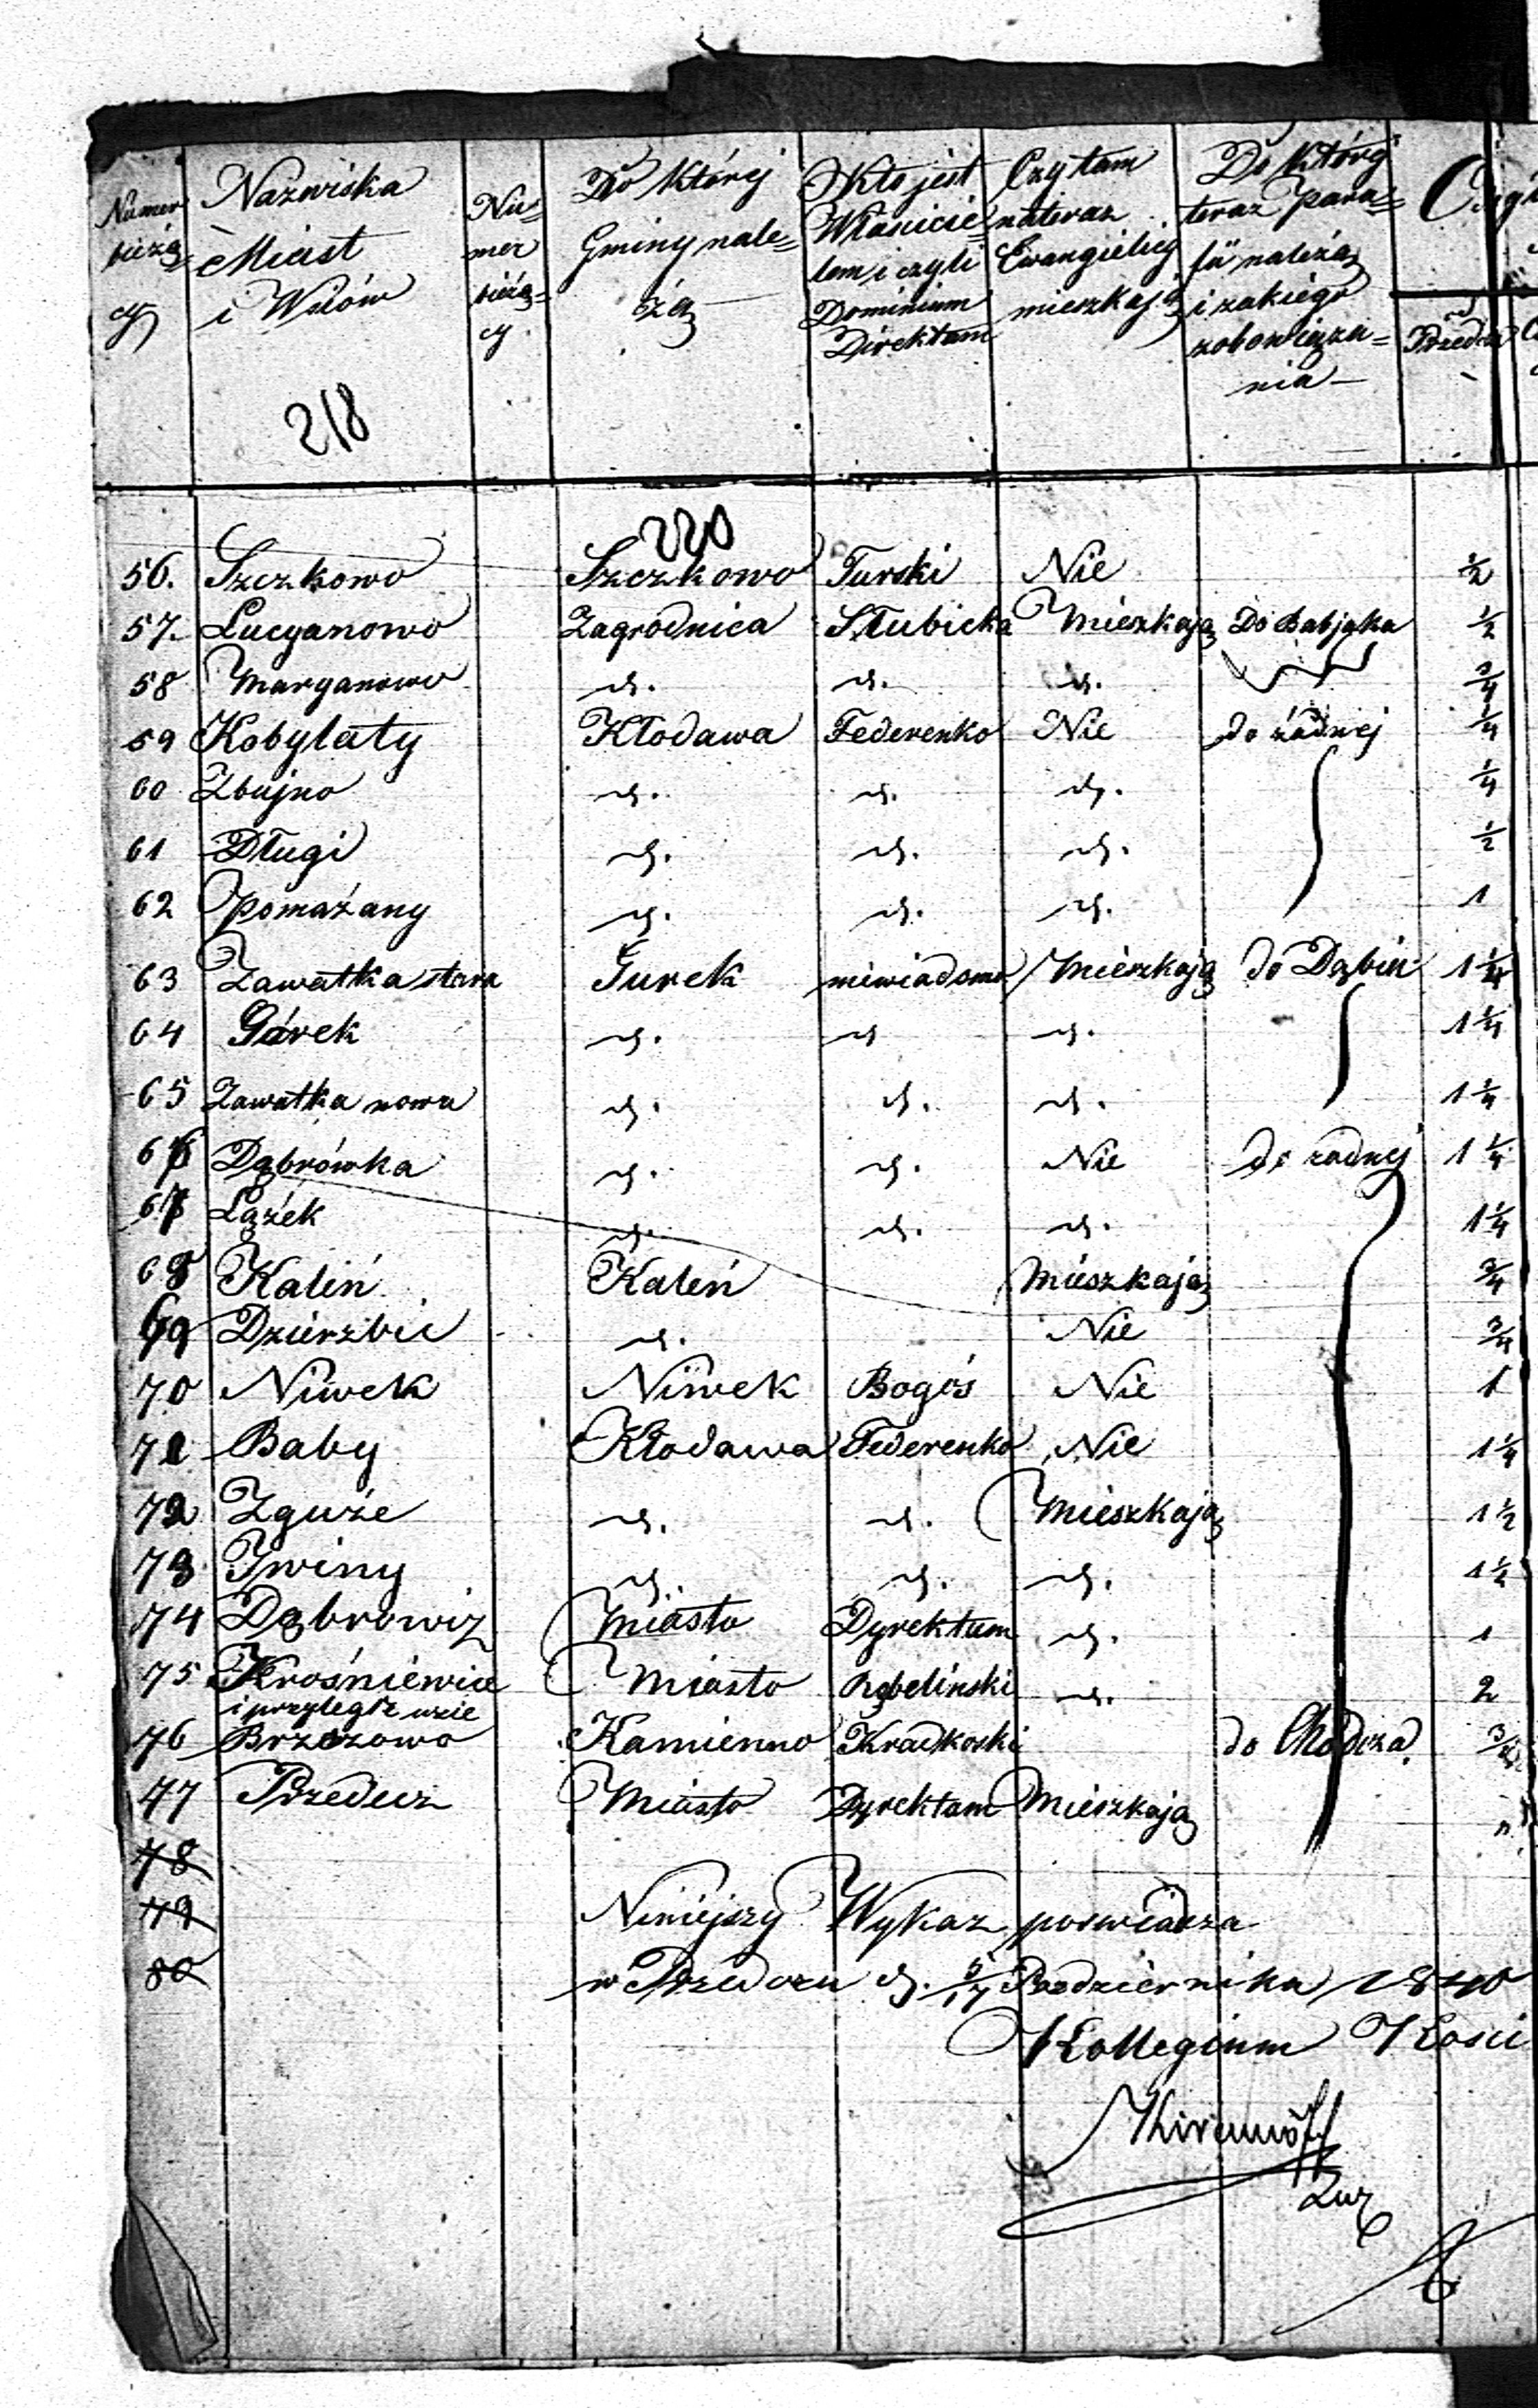 Numer bieżą= cy
Nazwiska Miast i Wsiów
Nu= mer bieżą= cy.
Do której Gminy nale= żą
Kto jest Właścicie= lem i czyli Dominium Direktum
Czy tam nateraz Ewangielicy mieszkają
Do któréj teraz para= fii należą i zakiégo zobowiąza= nia
Przedcza
218
220
56. Szczkowo Szczkowo Turski Nie ½
57. Lucyanowo Zagrodnica Słubicka Mieszkają Do Babjaka ½
58 Maryanowo d. d. d. ¾
59 Kobylaty Kłodawa Federenko Nie do żadnej ¼
60 Zbujno d. d. d. ¼
61 Długi d. d. d. ½
62 Pomażany d. d. d. 1
63 Zawatka stara Turek niewiadomo Mieszkają do Dąbiu 1¼
64 Górek d. d d. 1¼
65 Zawatka nowa d. d. d. 1¼
66 Dąbrówka d. d. Nie do żadnej 1¼
67 Lążek d. d. d. 1¼
68 Kaliń Kaleń Mieszkają ¾
69 Dzierzbic d. Nie ¾
70 Niwek Niwek Bogós Nie 1
71 Baby Kłodawa Federenko Nie 1¼
72 Zguże d. d. Mieszkają 1½
73 Iwiny d. d. d. 1½
74 Dąbrowiz Miasto Dyrektum d. 1
75 Krośniewice Miasto Rębelinski d. 2
i przyległe wsie
76 Brzezowo Kamienno Kradkoski do Chodcza ¾
77 Przedecz Miasto Dyrektum Mieszkają
78
79 Niniejszy Wykaz poswiadcza
80 w Przedczu d. 5/17 Pazdziernika 1840
Kollegium Kości